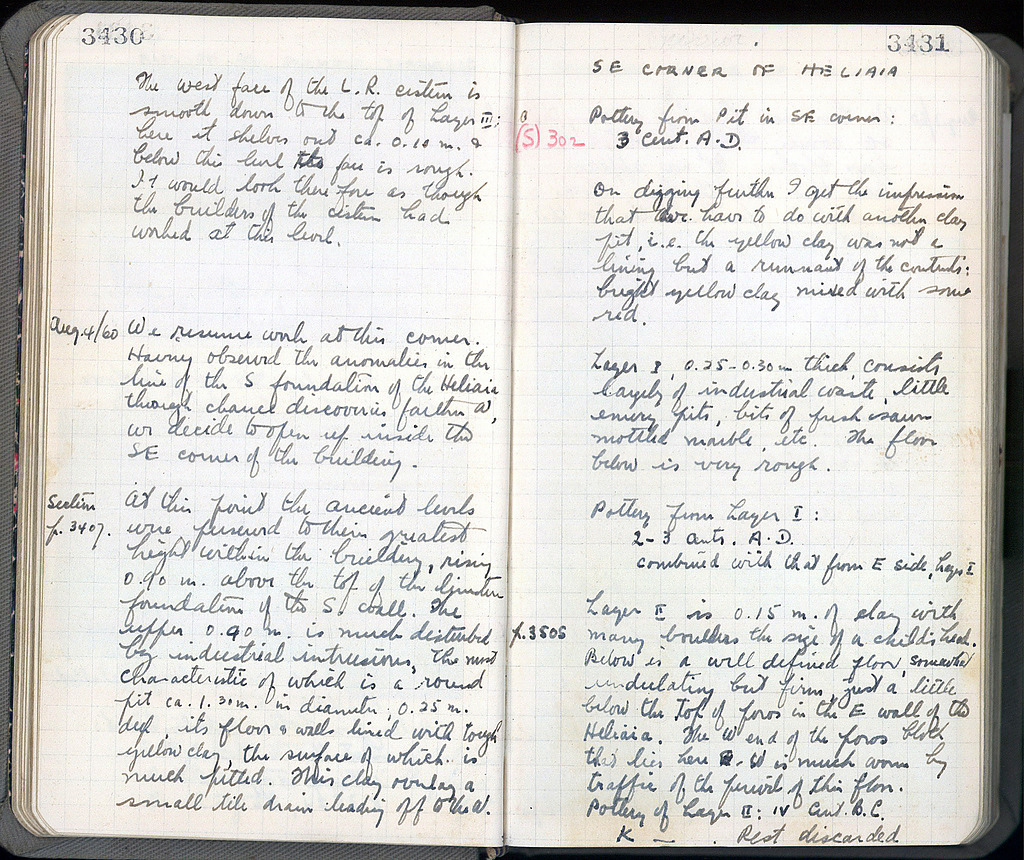 3430
The west face of the L. R. cistern is
smooth down to the top of Layer III;
here it shelves out ca. 0.10 m. &
below this level its face is rough.
It would look therefore as though
the builders of the cistern had
worked at this level.
Aug. 4/60 We resume work at this corner.
Having observed the anomalies in the
line of the S foundation of the Heliaia
through chance discoveries farther W,
we decide to open up inside the
SE corner of the building.
Section At this point the ancient levels
p. 3407. were preserved to their greatest
height within the building, rising
0.90 m. above the top of the
foundation of the S. wall. The
upper 0.90 m. is much disturbed
by industrial intrusions, the most
characteristic of which is a round
pit ca. 1.30 m. in diameter, 0.25 m.
deep, its floor & walls lined with tough
yellow clay, the surface of which is
much pitted. This clay overlay a
small tile drain leading off to the W.
3431
SE CORNER OF HELIAIA
Pottery from Pit in SE corner:
(S) 302 3 Cent. A.D.
On digging further I get the impression
that we have to do with another clay
pit, i.e. the yellow clay was not a
lining but a remnant of the contents:
bright yellow clay mixed with some
red.
Layer I, 0.25-0.30 m thick, consists
largely of industrial waste, little
emery pits, bits of fresh sawn
mottled marble, etc. The floor
below is very rough.
Pottery from Layer I:
2-3 cents. A.D.
combined with that from E side, Layer I
Layer II is 0.15 m. of clay with
p. 3505 many boulders the size of a child's head.
Below is a well defined floor, somewhat
undulating but firm, just a little
below the top of poros in the E wall of the
Heliaia. The W end of the poros block
that lies here E-W is much worn by
traffic of the period of this floor.
Pottery of Layer II: IV Cent. B.C.
K — . Rest discarded